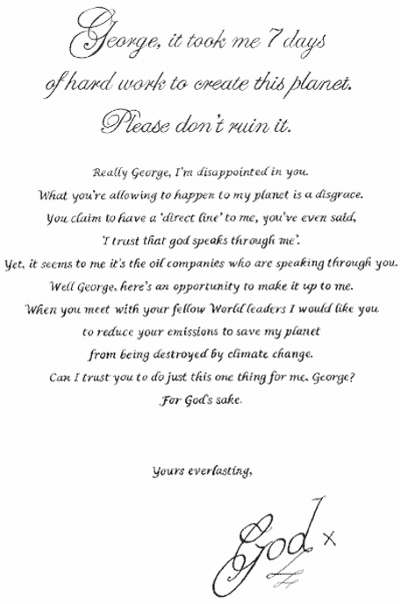 George, it took me 7 days
of hard work to create this planet.
Please don't ruin it.
Really George, I'm disappointed in you.
What you're allowing to happen to my planet is a disgrace.
You claim to have a 'direct line' to me, you've even said,
'I trust that god speaks through me'.
Yet, it seems to me it's the oil companies who are speaking through you.
Well George, here's an opportunity to make it up to me.
When you meet with your fellow World leaders I would like you
to reduce your emissions to save my planet
from being destroyed by climate change.
Can I trust you to do just this one thing for me, George?
For God's sake.
Yours everlasting,
God x